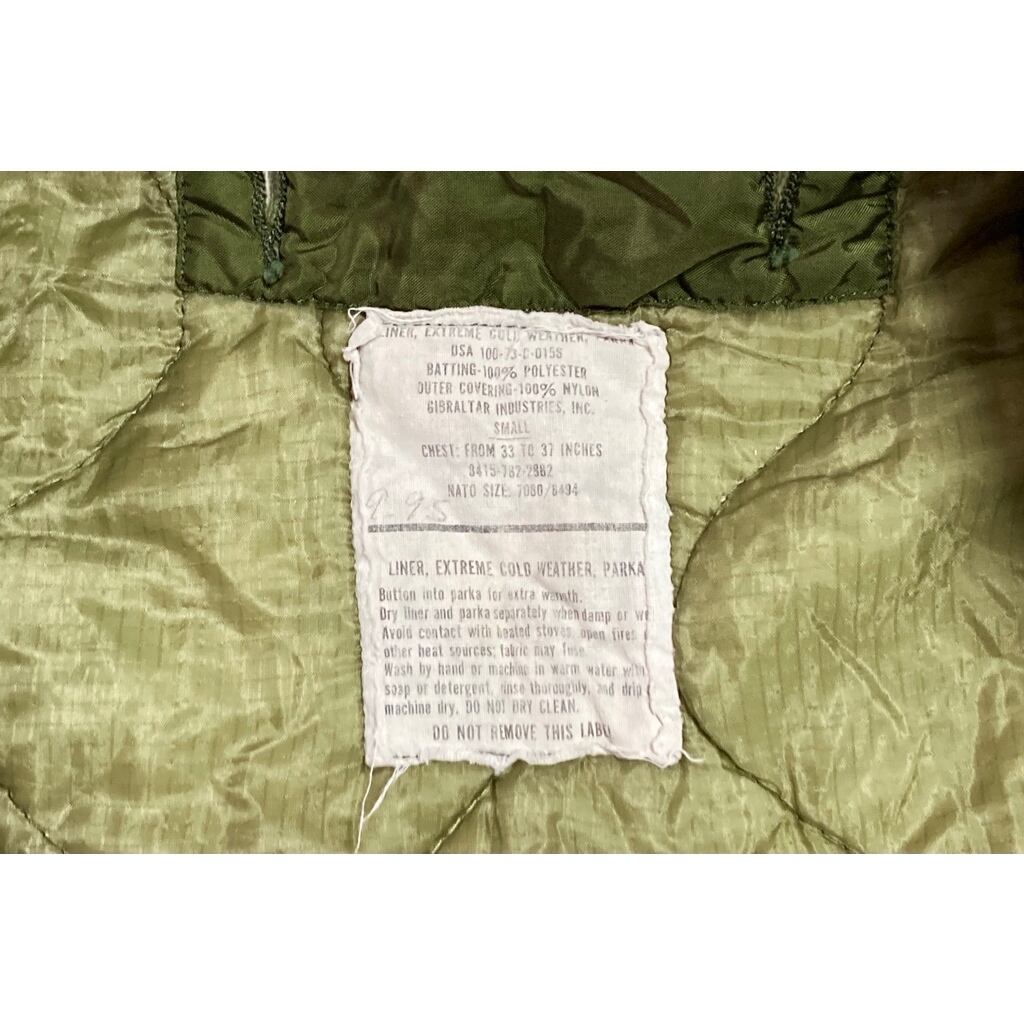 LINER, EXTREME COLD WEATHER, PARKA
DSA 100-73-C-0155
BATTING-100% POLYESTER
OUTER COVERING-100% NYLON
GIBRALTAR INDUSTRIES, INC.
SMALL
CHEST: FROM 33 TO 37 INCHES
8415-782-2882
NATO SIZE: 7080/8494
9.95
LINER, EXTREME COLD WEATHER, PARKA
Button into parka for extra warmth.
Dry liner and parka separately when damp or we
Avoid contact with heated stoves, open fires
other heat sources; fabric may fuse.
Wash by hand or machine in warm water with
soap or detergent, rinse thoroughly, and drip
machine dry. DO NOT DRY CLEAN.
DO NOT REMOVE THIS LABE